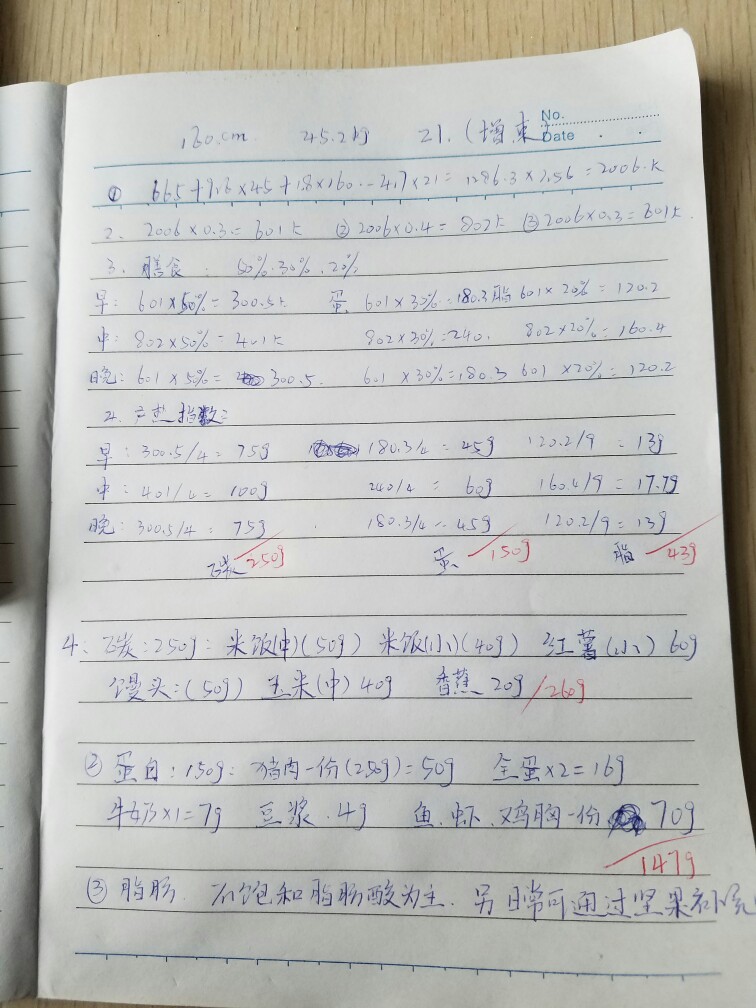 No.
160.cm 45.2kg 21.(增重)
Date
① 665+9.6×45+1.8×160-4.7×21=1286.3×1.56=2006.K
2. 2006×0.3=601K ②2006×0.4=802K ③2006×0.3=601K.
3. 膳食: 50%.30%.20%
早: 601×50%=300.5K 蛋 601×30%=180.3 脂 601×20%=120.2
中: 802×50%=401K 802×30%=240. 802×20%=160.4
晚: 601×50%= 300.5. 601×30%=180.3 601×20%=120.2
4. 产热指数:
早: 300.5/4=75g 180.3/4=45g 120.2/9=13g
中: 401/4=100g 240/4=60g 160.4/9=17.7g
晚: 300.5/4=75g 180.3/4=45g 120.2/9=13g
碳 250g 蛋 150g 脂 43g
4: 碳:250g: 米饭(中)(50g) 米饭(小)(40g) 红薯(小)60g
馒头:(50g) 玉米(中)40g 香蕉 20g /260g
② 蛋白:150g: 猪肉一份(250g)=50g 全蛋×2=16g
牛奶×1=7g 豆浆.4g 鱼.虾.鸡胸一份 70g
147g
③ 脂肪. 不饱和脂肪酸为主.另日常可通过坚果补充